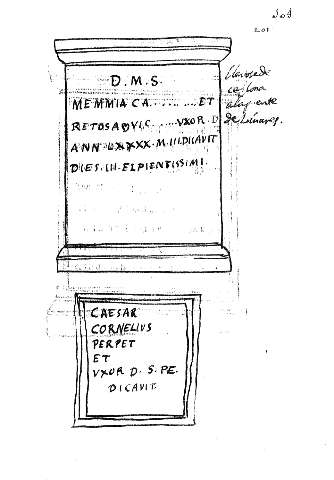 201
D.M.S
MEMMIA CA.......... ET
RETOSA QVIC......VXOR D
ANN LXXXX.M.III.DICAVIT
DIES.III.EIPIENTISSIMI
Llevose de
de Linares.
CAESAR
CORNELIUS
PERPET
ET
VXOR D. S. PE.
DICAVIT.